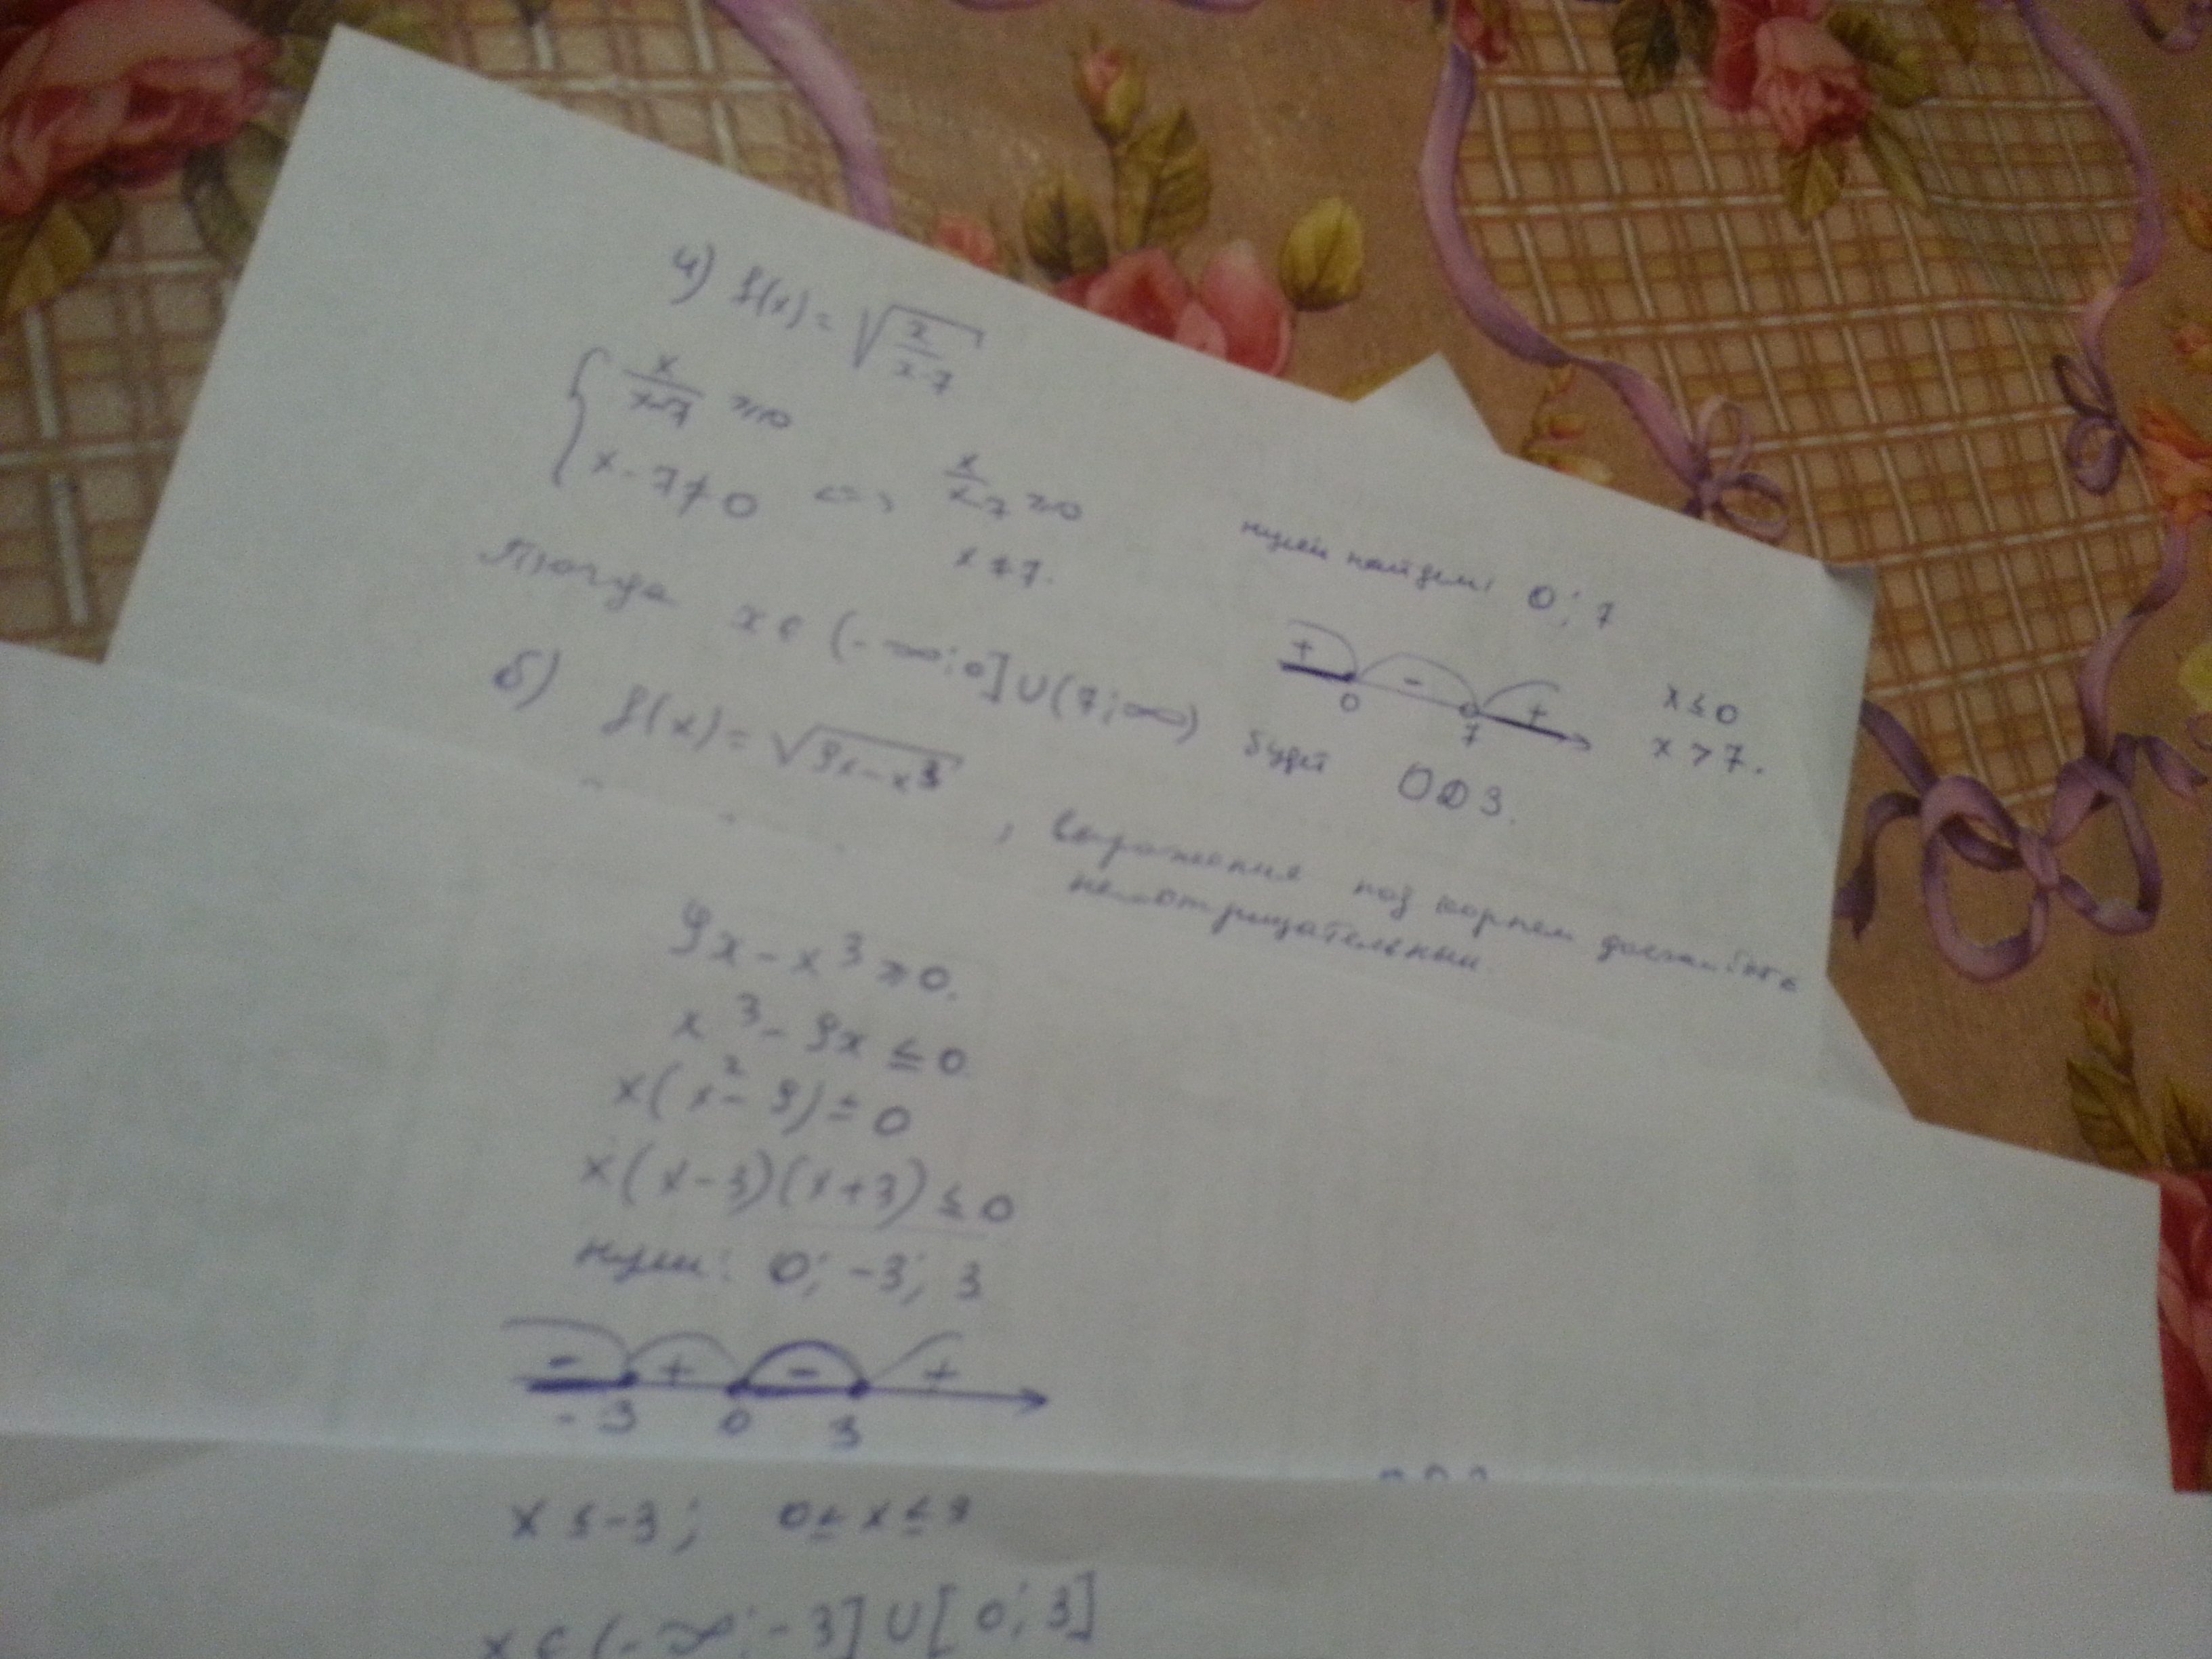 а) f(x) = √(x/(x-7))
{ x/(x-7) ≥ 0
x - 7 ≠ 0 <=> x/(x-7) ≥ 0
x ≠ 7.
нулей найдем: 0; 7
+ - +
0 7
x ≤ 0
x > 7.
Тогда x ∈ (-∞; 0] ∪ (7; ∞) будет ОДЗ.
б) f(x) = √(9x - x³) , выражения под корнем должно быть
неотрицательным.
9x - x³ ≥ 0.
x³ - 9x ≤ 0
x(x² - 9) ≤ 0
x(x-3)(x+3) ≤ 0
нули: 0; -3; 3
- + - +
-3 0 3
x ≤ -3; 0 ≤ x ≤ 3
x ∈ (-∞; -3] ∪ [0; 3]